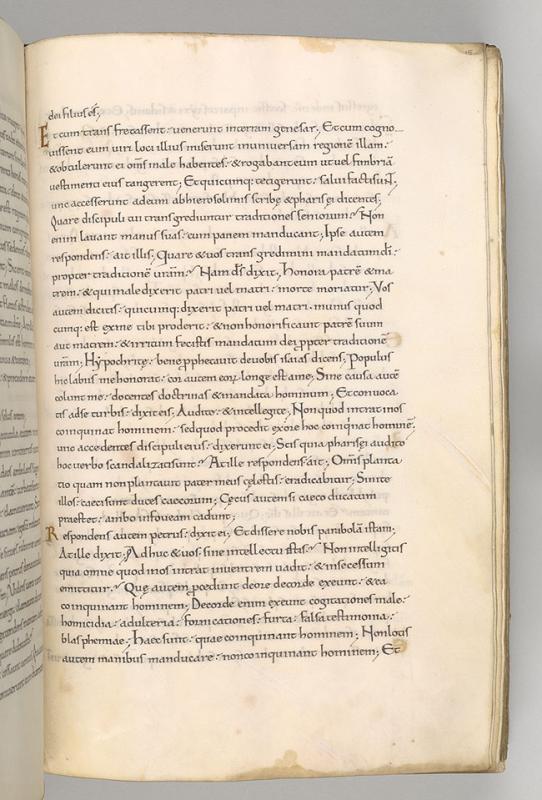 dei filius es;
Et cum trans fretassent · venerunt in terram genesar; Et cum cogno
vissent eum viri loci illius miserunt in universam regionē illam ·
& obtulerunt ei om̄s male habentes · & rogabant eum ut vel fimbriā
vestimenti eius tangerent; Et quicumq: tetigerunt · salvi facti sunt;
unc accesserunt ad eum ab hierosolimis scribę & pharisęi dicentes;
Quare discipuli tui transgrediuntur traditiones seniorum? Non
enim lavant manus suas · cum panem manducant; Ipse autem
respondens · ait illis; Quare & vos transgredimini mandatum dī ·
propter traditionē vrām? Nam d̄s dixit; Honora patrē & ma
trem · & qui maledixerit patri vel matri · morte moriatur; Vos
autem dicitis · quicumq; dixerit patri vel matri · munus quod
cumq; est ex me tibi proderit · & non honorificavit patrē suum
aut matrem · & irritum fecistis mandatum dei ꝓpter traditionē
vrām; Hypochritę · bene ꝓphetavit de vobis isaias dicens; Populus
hic labiis me honorat · cor autem eorꝝ longe est a me; Sine causa autē
colunt me · docentes doctrinas & mandata hominum; Et convoca
tis ad se turbis · dixit eis; Audite · & intellegite; Non quod intrat in os
coinquinat hominem · sed quod procedit ex ore hoc coinquinat hominē ·
unc accedentes discipuli eius · dixerunt ei; Scis quia pharisęi audito
hoc verbo scandalizati sunt? At ille respondens ait; Om̄is planta
tio quam non plantavit pater meus cęlestis · eradicabitur; Sinite
illos · caeci sunt duces caecorum; Cęcus autem si caeco ducatum
praestet · ambo in foveam cadunt;
Respondens autem petrus · dixit ei; Edissere nobis parabolā istam;
At ille dixit; Adhuc & vos · sine intellectu estis? Non intelligitis
quia omne quod in os intrat in ventrem vadit · & in secessum
emittitur? Quę autem ꝓcedunt de ore de corde exeunt · & ea
coinquinant hominem; De corde enim exeunt cogitationes malę ·
homicidia · adulteria · fornicationes · furta · falsa testimonia ·
blasphemiae; Haec sunt · quae coinquinant hominem; Non lotis
autem manibus manducare · non coinquinant hominem; Et